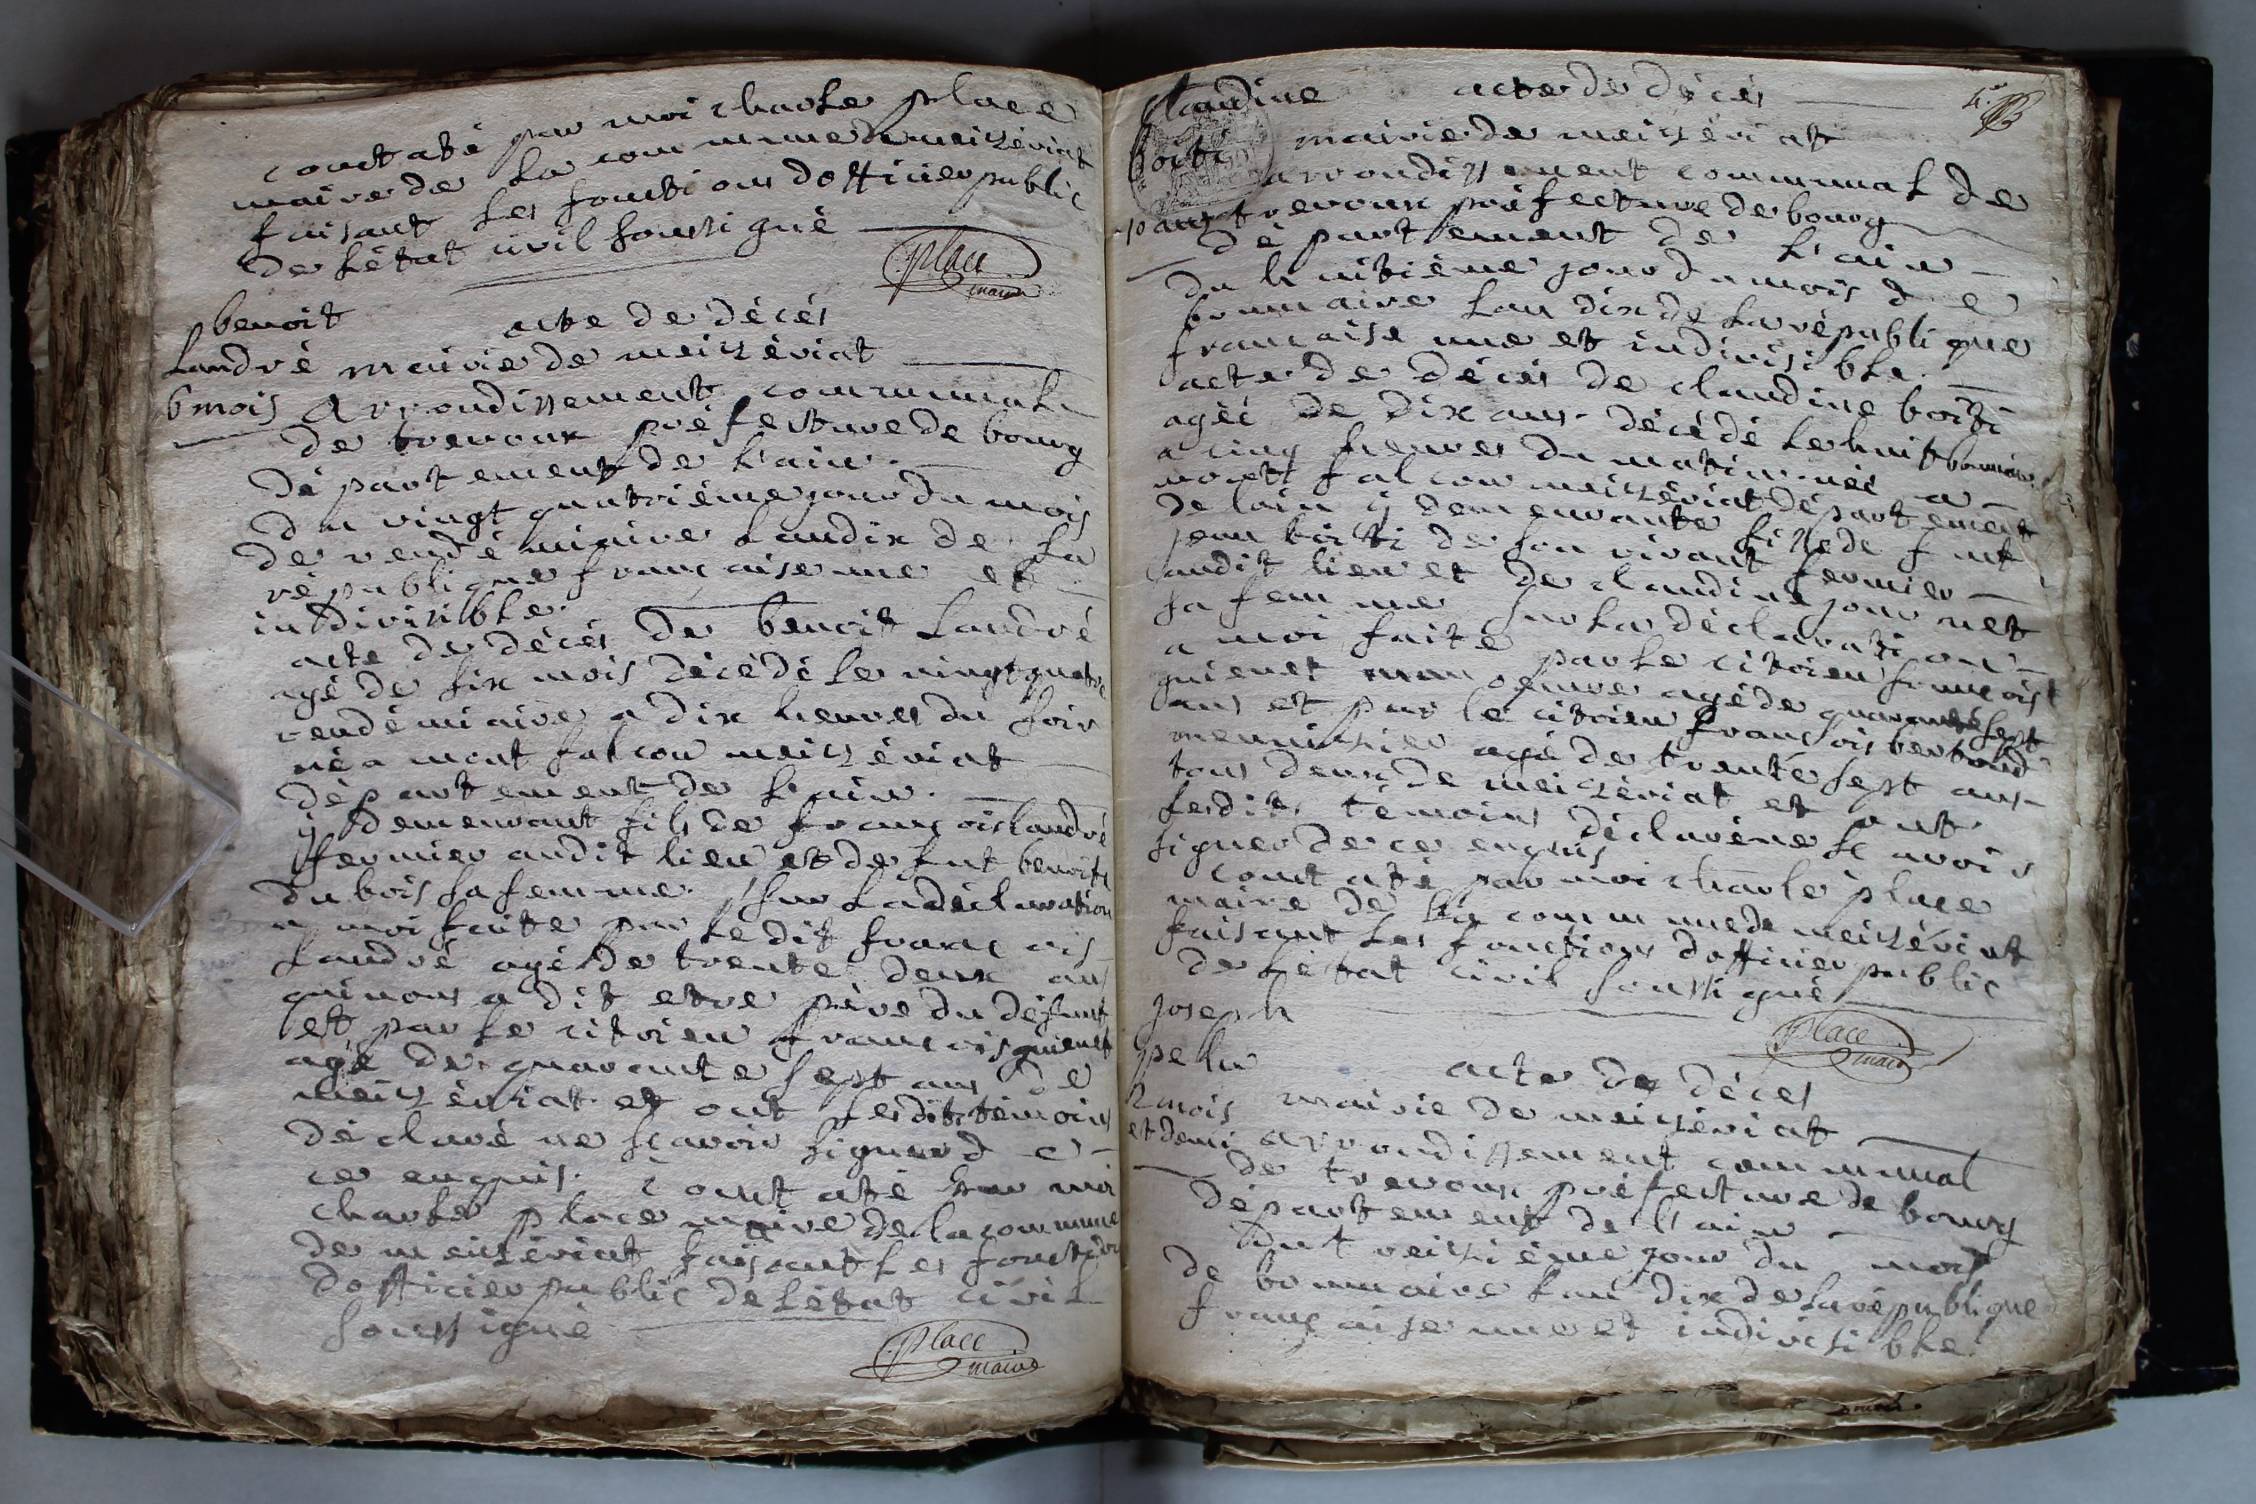 contaté par moi charle place
maire de la commune de meizériat
faisant les fonctions dofficier public
de létat civil soussigné
place
maire
benoit
Landré
6 mois
acte de décés
mairie de meizériat
arrondissement communal
de trevoux préfecture de bourg
département de l'ain.
du vingt quatrième jour du mois
de vendémiaire landix de la
république française une et
indivisible.
acte de décés de benoit Landré
agé de six mois décédé le vingt quatre
vendémiaire a dix heures du soir
né a mont falcon meizériat
département de l'ain.
ÿ demeurant fils de francois landré
fermier audit lieu et de fut benoite
dubois sa femme. sur la déclaration
a moi faite par ledit francois
Landré agé de trente deux ans
qui nous a dit etre père du défunt
et par le citoien francois guienet
agé de quarante sept ans de
meizériat et ont lesdits témoins
déclaré ne scavoir signer de
ce enquis. contaté par moi
charle place maire de la commune
de meizériat faisant les fonctions
dofficier public de létat civil
soussigné
place
maire
claudine
boiti
10 ans
4e
acte de décés
mairie de meizériat
arrondissement communal de
trevoux préfecture de bourg
département de l'ain
du huitième jour du mois de
brumaire lan dix de la république
francaise une et indivisible.
acte de décés de claudine boiti
agéé de dix ans. décédé le huit brumaire
a cinq heures du matin née a
mont falcon meizériat département
de lain ÿ demeurante fille de fut
jean boiti de son vivant fermier
audit lieu et de claudine jouvnet
sa femme sur la déclaration
a moi faite par le citoien francois
guienet agé de quarante sept
ans et par le citoien francois bertond
menuisier agé de trente sept ans
tous deux de meizériat et ont
lesdits témoins déclaré ne scavoir
signer de ce enquis
contaté par moi charle place
maire de la commune de meizériat
faisant les fonctions dofficier public
de létat civil soussigné
place
maire
joseph
pelu
2 mois
et demi
acte de déces
mairie de meizériat
arrondissement communal
de trevoux préfecture de bourg
département de l'ain
dut reizième jour du mois
de brumaire lan dix de la république
française une et indivisible.